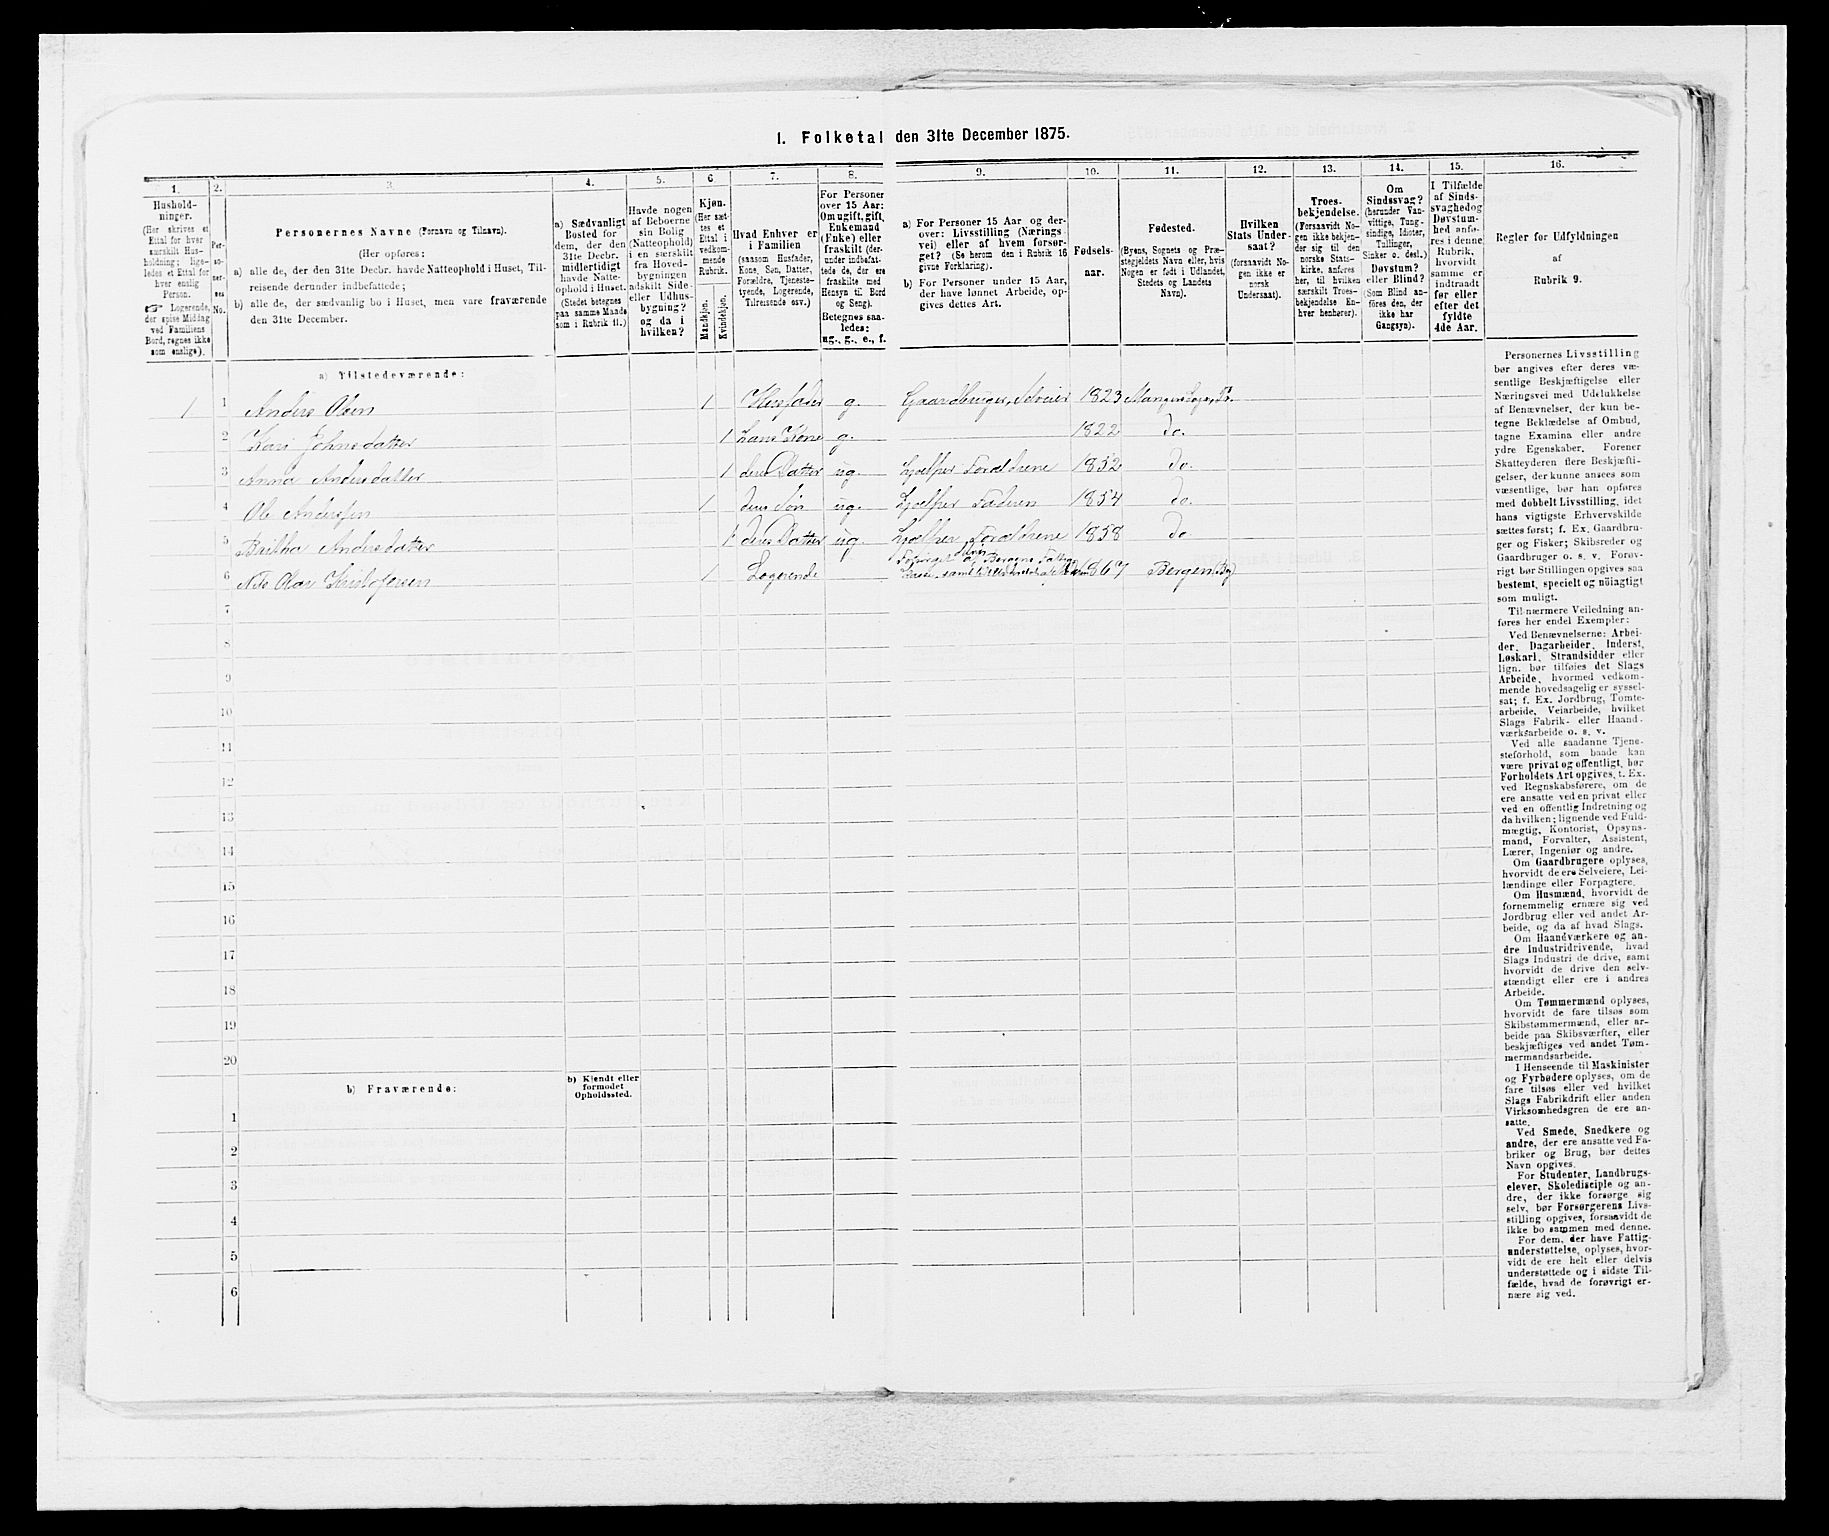 1. Folketal den 31te December 1875.
1. 2. 3. 4. 5. 6. 7. 8. 9. 10. 11. 12. 13. 14. 15. 16.
Hushold-
ninger.
(Her skrives et
Ettal for hver
særskilt Hus-
holdning; lige-
ledes et Ettal for
hver enslig
Person.
☞ Logerende,
der spise Middag
ved Familiens
Bord, regnes ikke
som enslige).
Per-
so-
ner-
nes
No.
Personernes Navne (Fornavn og Tilnavn).
(Her opføres:
a) alle de, der den 31te Decbr. havde Natteophold i Huset, Til-
reisende derunder indbefattede;
b) alle de, der sædvanlig bo i Huset, men vare fraværende
den 31te December.
a) Sædvanligt
Bosted for
dem, der den
31te Decbr.
midlertidigt
havde Natte-
ophold i Huset.
(Stedet betegnes
paa samme Maade
som i Rubrik 11.)
Havde nogen
af Beboerne
sin Bolig
(Natteophold)
i en særskilt
fra Hoved-
bygningen
adskilt Side-
eller Udhus-
bygning?
og da i
hvilken?
Kjøn.
(Her sæt-
tes et
Ettal i
vedkom-
mende
Rubrik.
Mandkjøn.
Kvindekjøn.
Hvad Enhver er
i Familien
(saasom Husfader,
Kone, Søn, Datter,
Forældre, Tjeneste-
tyende, Logerende,
Tilreisende osv.)
For Personer
over 15 Aar:
Om ugift, gift,
Enkemand
(Enke) eller
fraskilt (der-
under indbefat-
tede de, der ere
fraskilte med
Hensyn til Bord
og Seng).
Betegnes saa-
ledes:
ug., g., e., f.
a) For Personer 15 Aar og der-
over: Livsstilling (Nærings-
vei) eller af hvem forsør-
get? (Se herom den i Rubrik 16
givne Forklaring).
b) For Personer under 15 Aar,
der have lønnet Arbeide, op-
gives dettes Art.
Fødsels-
aar.
Fødested.
(Byens, Sognets og Præ-
stegjeldets Navn eller, hvis
Nogen er født i Udlandet,
Stedets og Landets
Navn).
Hvilken
Stats Under-
saat?
(forsaavidt No-
gen ikke er
norsk
Undersaat).
Troes-
bekjendelse.
(Forsaavidt No-
gen ikke bekjen-
der sig til den
norske Stats-
kirke, anføres
her, til hvilken
særskilt Troes-
bekjendelse En-
hver henhører).
Om
Sindssvag?
(herunder Van-
vittige, Tung-
sindige, Idioter,
Tullinger,
Sinker o. desl.)
Døvstum?
eller Blind?
(Som Blind an-
føres den, der
ikke har
Gangsyn).
I Tilfælde
af Sinds-
svaghed og
Døvstum-
hed anfø-
res i denne
Rubrik,
hvorvidt
samme er
indtraadt
før eller
efter det
fyldte
4de Aar.
Regler for Udfyldningen
af
Rubrik 9.
a) Tilstedeværende:
1 1 Anders Olsen 1 Husfader g. Gaardbruger, Selveier 1823
2 Kari Johnsdatter 1 hans Kone g. 1822 do.
3 Anna Andersdatter 1 deres Datter ug. hjelper Forældrene 1852 do.
4 Ole Andersen 1 deres Søn ug. hjelper Faderen 1854 do.
5 Britha Andersdatter 1 deres Datter ug. hjelper Forældrene 1858 do
6 Nils Olai Kristofersen 1 Logerende 1867 Bergen (By)
7
8
9
10
11
12
13
14
15
16
17
18
19
20
b) Fraværende:
b) Kjendt eller
formodet
Opholdssted.
1
2
3
4
5
6
Personernes Livsstilling
bør angives efter deres væ-
sentlige Beskjæftigelse eller
Næringsvei med Udelukkelse
af Benævnelser, der kun be-
tegne Beklædelse af Ombud,
tagne Examina eller andre
ydre Egenskaber. Forener
Skatteyderen flere Beskjæfti-
gelser, der kunne ansees som
væsentlige, bør han opføres
med dobbelt Livsstilling, idet
hans vigtigste Erhvervskilde
sættes først; f. Ex. Gaardbru-
ger og Fisker; Skibsreder og
Gaardbruger o. s. v. Forøv-
rigt bør Stillingen opgives saa
bestemt, specielt og nøiagtigt
som muligt.
Til nærmere Veiledning an-
føres her endel Exempler:
Ved Benævnelserne: Arbei-
der, Dagarbeider, Inderst,
Løskarl, Strandsidder eller
lign. bør tilføies det Slags
Arbeide, hvormed vedkom-
mende hovedsagelig er syssel-
sat; f. Ex. Jordbrug, Tomte-
arbeide, Veiarbeide, hvilket
Slags Fabrik- eller Haand-
værksarbeide o. s. v.
Ved alle saadanne Tjene-
steforhold, som baade kan
være privat og offentligt, bør
Forholdets Art opgives, t. Ex.
ved Regnskabsførere, om de
ere ansatte ved en privat eller
ved en offentlig Indretning og
da hvilken; lignende ved Fuld-
mægtig, Kontorist, Opsyns-
mand, Forvalter, Assistent,
Lærer, Ingeniør og andre.
Om Gaardbrugere oplyses,
hvorvidt de ere Selveiere, Lei-
lændinge eller Forpagtere.
Om Husmænd, hvorvidt de
fornemmelig ernære sig ved
Jordbrug eller ved andet Ar-
beide, og da af hvad Slags.
Om Haandværkere og an-
dre Industridrivende, hvad
Slags Industri de drive, samt
hvorvidt de drive den selv-
stændigt eller ere i andres
Arbeide.
Om Tømmermænd oplyses,
hvorvidt de fare tilsøs som
Skibstømmermænd, eller ar-
beide paa Skibsværfter, eller
beskjæftiges ved andet Tøm-
mermandsarbeide.
I Henseende til Maskinister
og Fyrbødere oplyses, om de
fare tilsøs eller ved hvilket
Slags Fabrikdrift eller anden
Virksomhedsgren de ere an-
satte.
Ved Smede, Snedkere og
andre, der ere ansatte ved Fa-
briker og Brug, bør dettes
Navn opgives.
For Studenter, Landbrugs-
elever, Skoledisciple og an-
dre, der ikke forsørge sig
selv, bør Forsørgerens Livs-
stilling opgives, forsaavidt de
ikke bo sammen med denne.
For dem, der have Fattig-
understøttelse, oplyses, hvor-
vidt de ere helt eller delvis
understøttede og i sidste Til-
fælde, hvad de forøvrigt er-
nære sig ved.